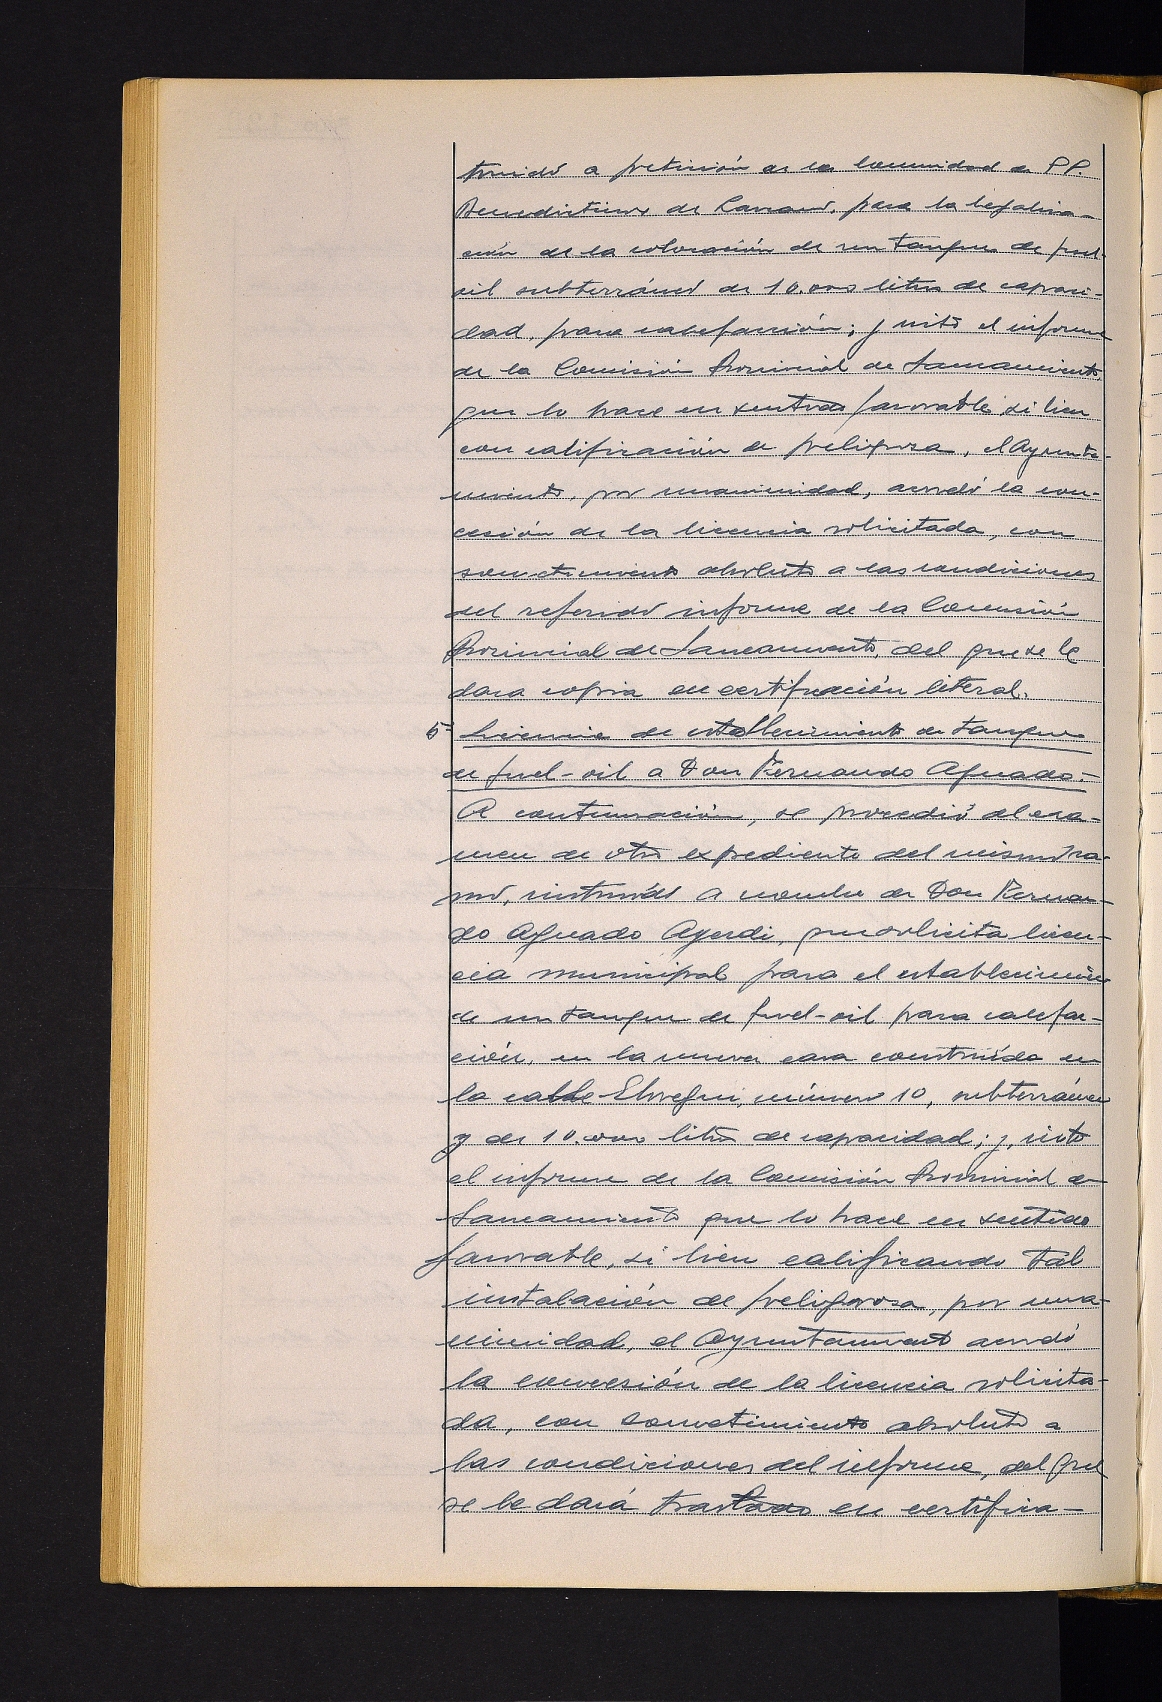 truido a petición de la Comunidad de PP.
Benedictinos de Lazcano, para la legaliza-
ción de la colocación de un tanque de fuel-
oil subterráneo de 10.000 litros de capaci-
dad, para calefacción; y visto el informe
de la Comisión Provincial de Saneamiento,
que lo hace en sentido favorable si bien
con calificación de peligrosa, el Ayunta-
miento, por unanimidad, acordó la con-
cesión de la licencia solicitada, con
sometimiento absoluto a las condiciones
del referido informe de la Comisión
Provincial de Saneamiento, del que se le
dara copia en certificación literal.
5º Licencia de establecimiento de tanque
de fuel-oil a Don Fernando Aguado.-
A continuación, se procedió al exa-
men de otro expediente del mismo ra-
mo, instruído a nombre de Don Fernan-
do Aguado Ayerdi, que solicita licen-
cia municipal para el establecimiento
de un tanque de fuel-oil para calefac-
ción, en la nueva casa construída en
la calle Elosegui, número 10, subterráneo
y de 10.000 litros de capacidad; y, visto
el informe de la Comisión Provincial de
Saneamiento que lo hace en sentido
favorable, si bien calificando tal
instalación de peligrosa, por una-
nimidad, el Ayuntamiento acordó
la concesión de la licencia solicita-
da, con sometimiento absoluto a
las condiciones del informe, del que
se le dará traslado en certifica-